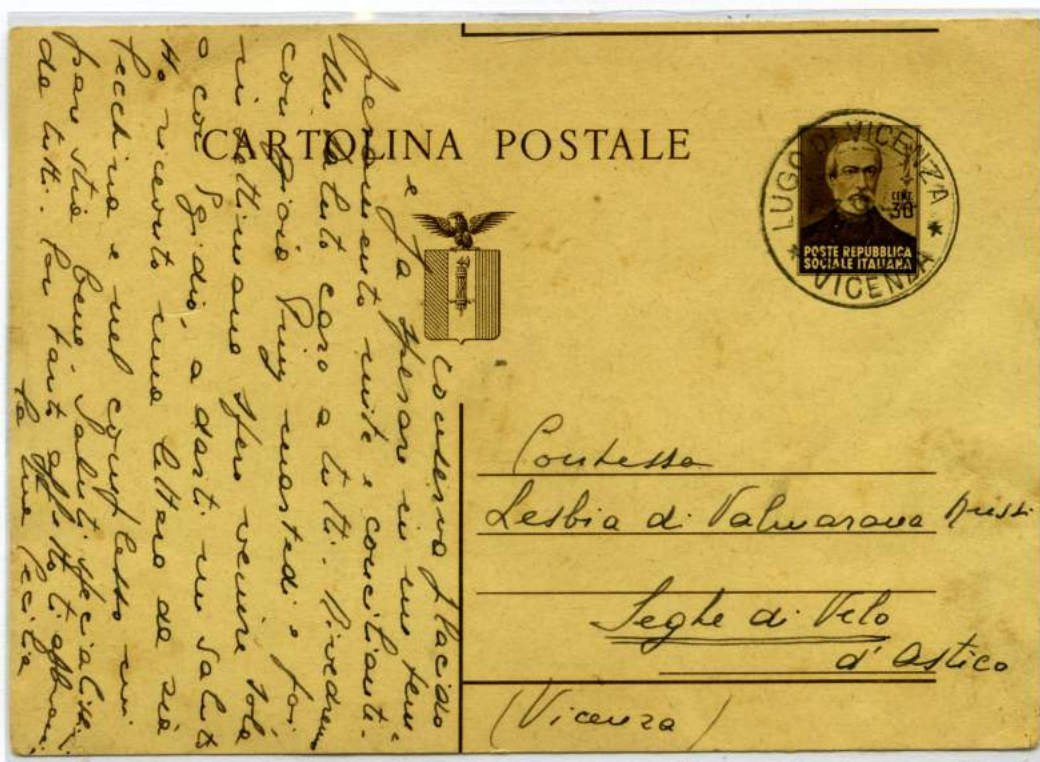 CARTOLINA POSTALE
LUGO DI VICENZA
* VICENZA *
CENT. 30
POSTE REPUBBLICA
SOCIALE ITALIANA
Contessa
Lesbia di Valmarana
Seghe di Velo
d'Astico
(Vicenza)
conserva placido
e fa sperare in un tem=
peramento mite e conciliante.
caro a tutti. Rivedremo
con gioia Puny martedì e poi
in settimana spero venire sola
o con Egidio, a darti un saluto
Ho ricevuto una lettera da zia
Pecchina e nel complesso mi
pare stia bene. Saluti specialissimi
da tutti. Con tanto affetto ti abbraccio
la tua Cecilia